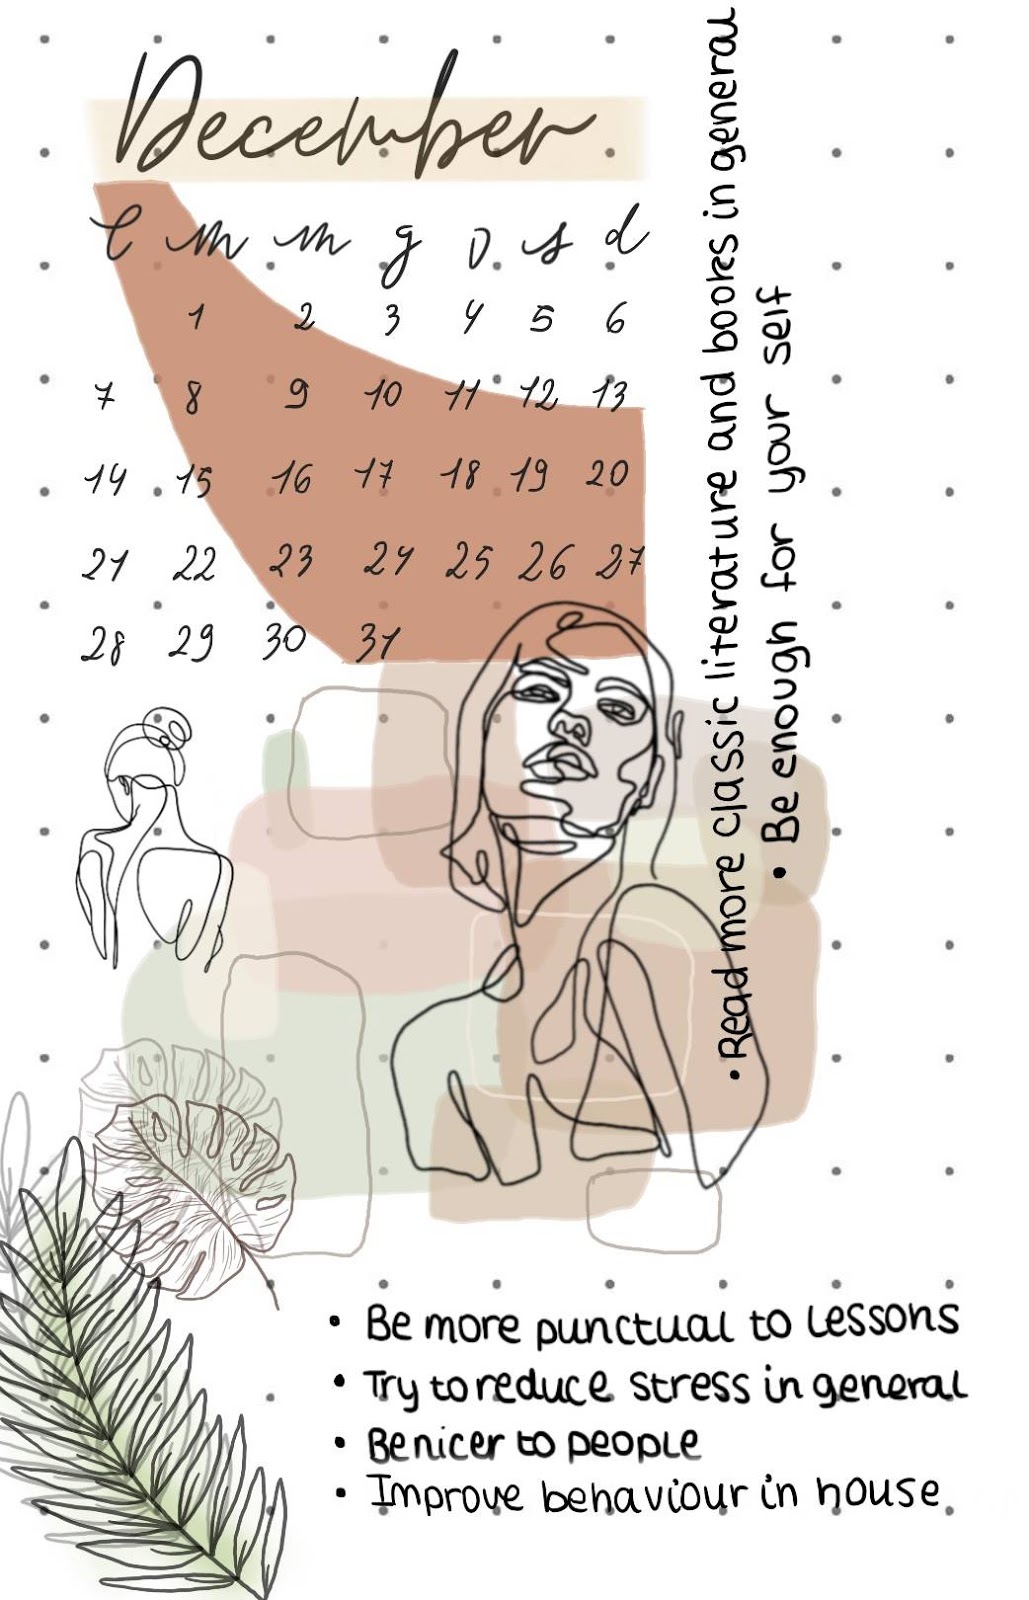 December
l m m g v s d
1 2 3 4 5 6
7 8 9 10 11 12 13
14 15 16 17 18 19 20
21 22 23 24 25 26 27
28 29 30 31
• Read more classic literature and books in general
• Be enough for your self
• Be more punctual to lessons
• Try to reduce stress in general
• Be nicer to people
• Improve behaviour in house